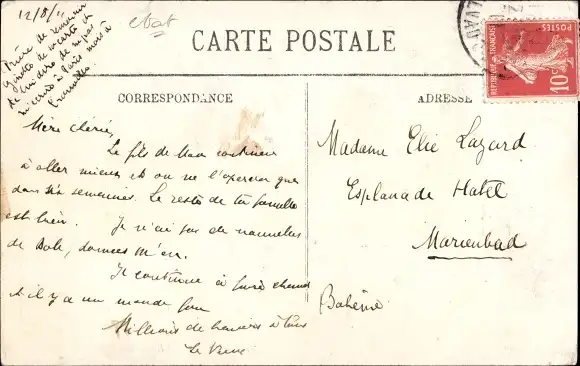 12/8/1
Prière de
Ginette de
de lui dire de
à Paris mais à
CARTE POSTALE
RÉPUBLIQUE FRANÇAISE
POSTES
10c
CORRESPONDANCE
ADRESSE
Mère chérie,
Le fils de continue
à aller mieux et on ne l'opérera que
dans six semaines. Le reste de ta famille
est bien. Je n'ai pas de nouvelles
de Bob, donnes m'en.
Il continue à faire chaud
et il y a un monde fou
Millions de baisers à tous
Madame Elie Lazard
Esplanade Hotel
Marienbad
Bohême